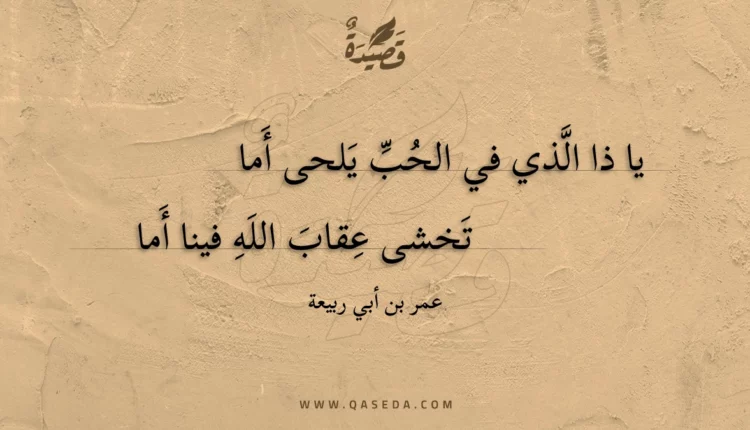 قَصِيدَةٌ
يا ذا الَّذي في الحُبِّ يَلحى أَما
تَخشى عِقابَ اللَهِ فينا أَما
عمر بن أبي ربيعة
WWW.QASEDA.COM